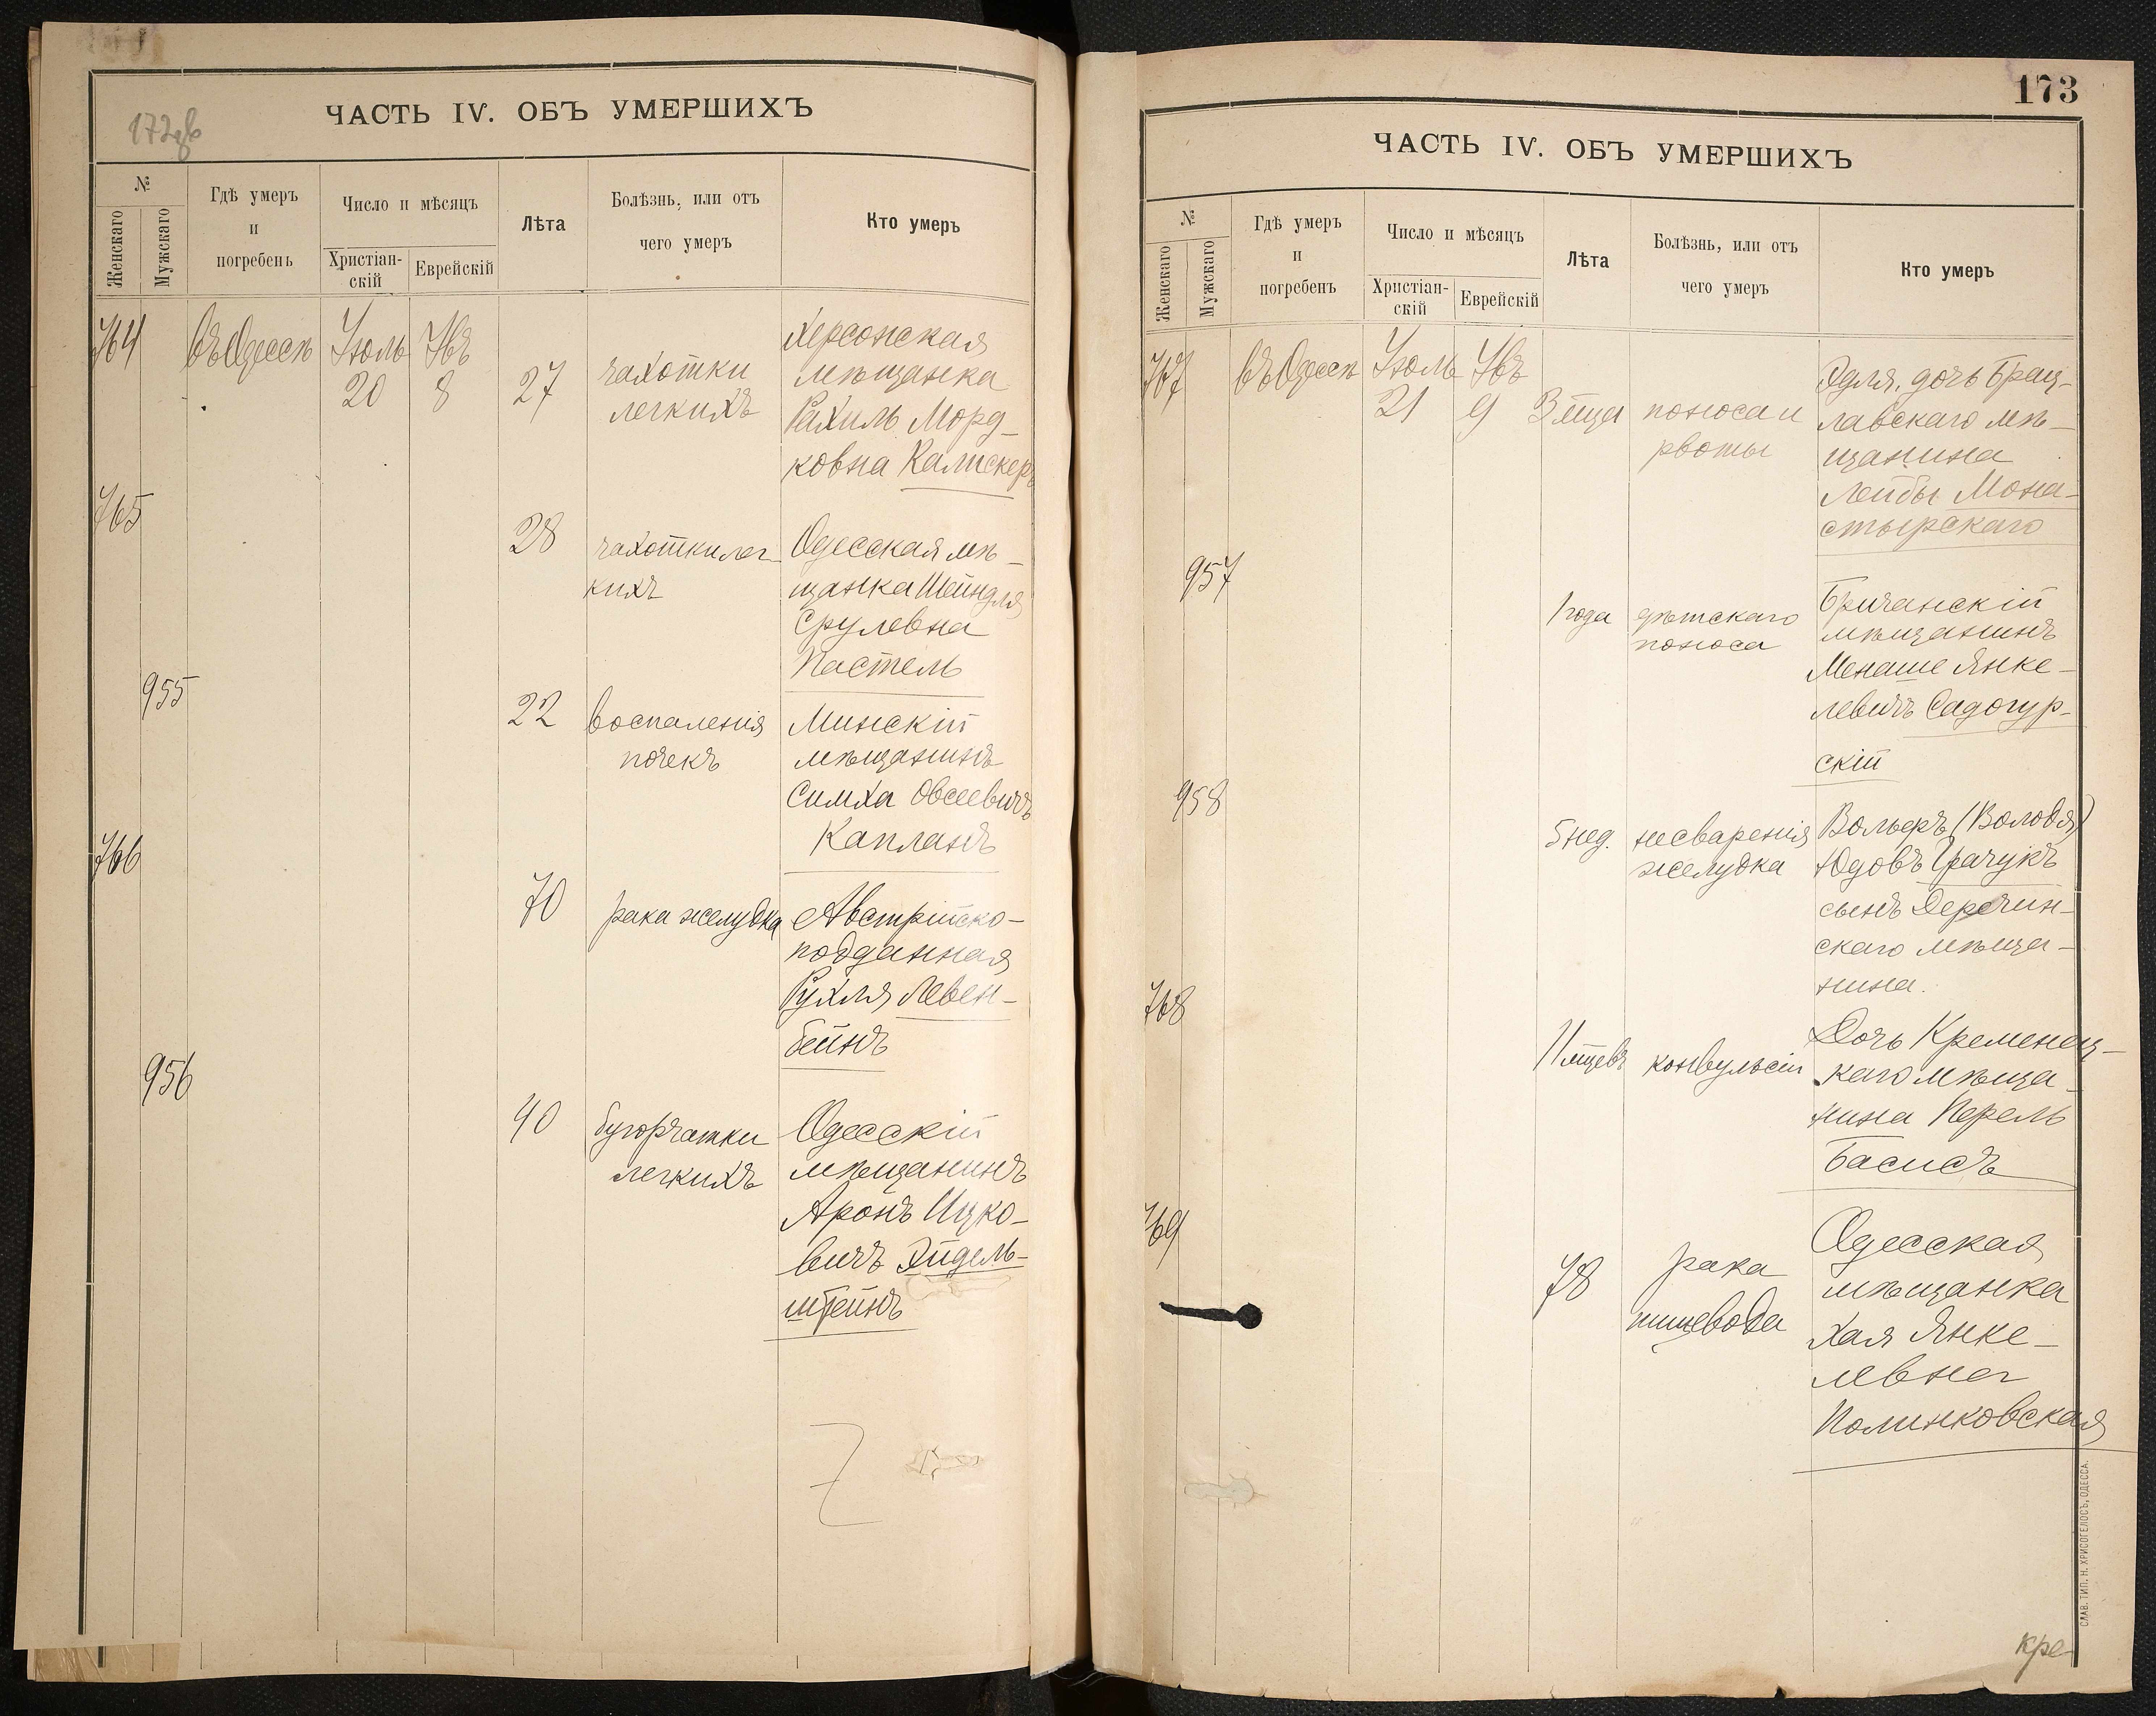 ЧАСТЬ IV. ОБЪ УМЕРШИХЪ
№
Женскаго
Мужскаго
Гдѣ умеръ
и
погребенъ
Число и мѣсяцъ
Христіан-
скій
Еврейскій
Лѣта
Болѣзнь, или отъ
чего умеръ
Кто умеръ
764
въ Одессѣ
Іюль
20
8
27
чахотки
легкихъ
Херсонская
мѣщанка
Рахиль Морд-
ковна
765
28
чахотки лег-
кихъ
Одесская мѣ-
щанка Шейндля
Срулевна
Пастель
955
22
воспаленія
почекъ
Минскій
мѣщанинъ
Симха Овсеевичъ
Капланъ
766
70
рака желудка
Австрійско-
подданная
Рухля Левен-
бейнъ
956
40
бугорчатки
легкихъ
Одесскій
мѣщанинъ
Аронъ Ицко-
вичъ Эйдель-
штейнъ
173
ЧАСТЬ IV. ОБЪ УМЕРШИХЪ
№
Женскаго
Мужскаго
Гдѣ умеръ
и
погребенъ
Число и мѣсяцъ
Христіан-
скій
Еврейскій
Лѣта
Болѣзнь, или отъ
чего умеръ
Кто умеръ
767
въ Одессѣ
Іюль
21
9
3 мца
поноса и
рвоты
Эдля, дочь Брац-
лавскаго мѣ-
щанина
Лейбы Мона-
стырскаго
957
1 года
дѣтскаго
поноса
Бричанскій
мѣщанинъ
Менаше Янке-
левичъ Садогур-
скій
958
5 нед.
несваренія
желудка
Вольфъ (Володя)
Юдовъ Грачукъ
сынъ Деречин-
скаго мѣща-
нина.
768
11 мцевъ
конвульсіи
Дочь Кременец-
каго мѣща-
нина Перель
Басисъ
769
78
рака
пищевода
Одесская
мѣщанка
Хая Янке-
левна
Полинковская
СЛАВ. ТИП. Н. ХРИСОГЕЛОСЪ, ОДЕССА.
кре-